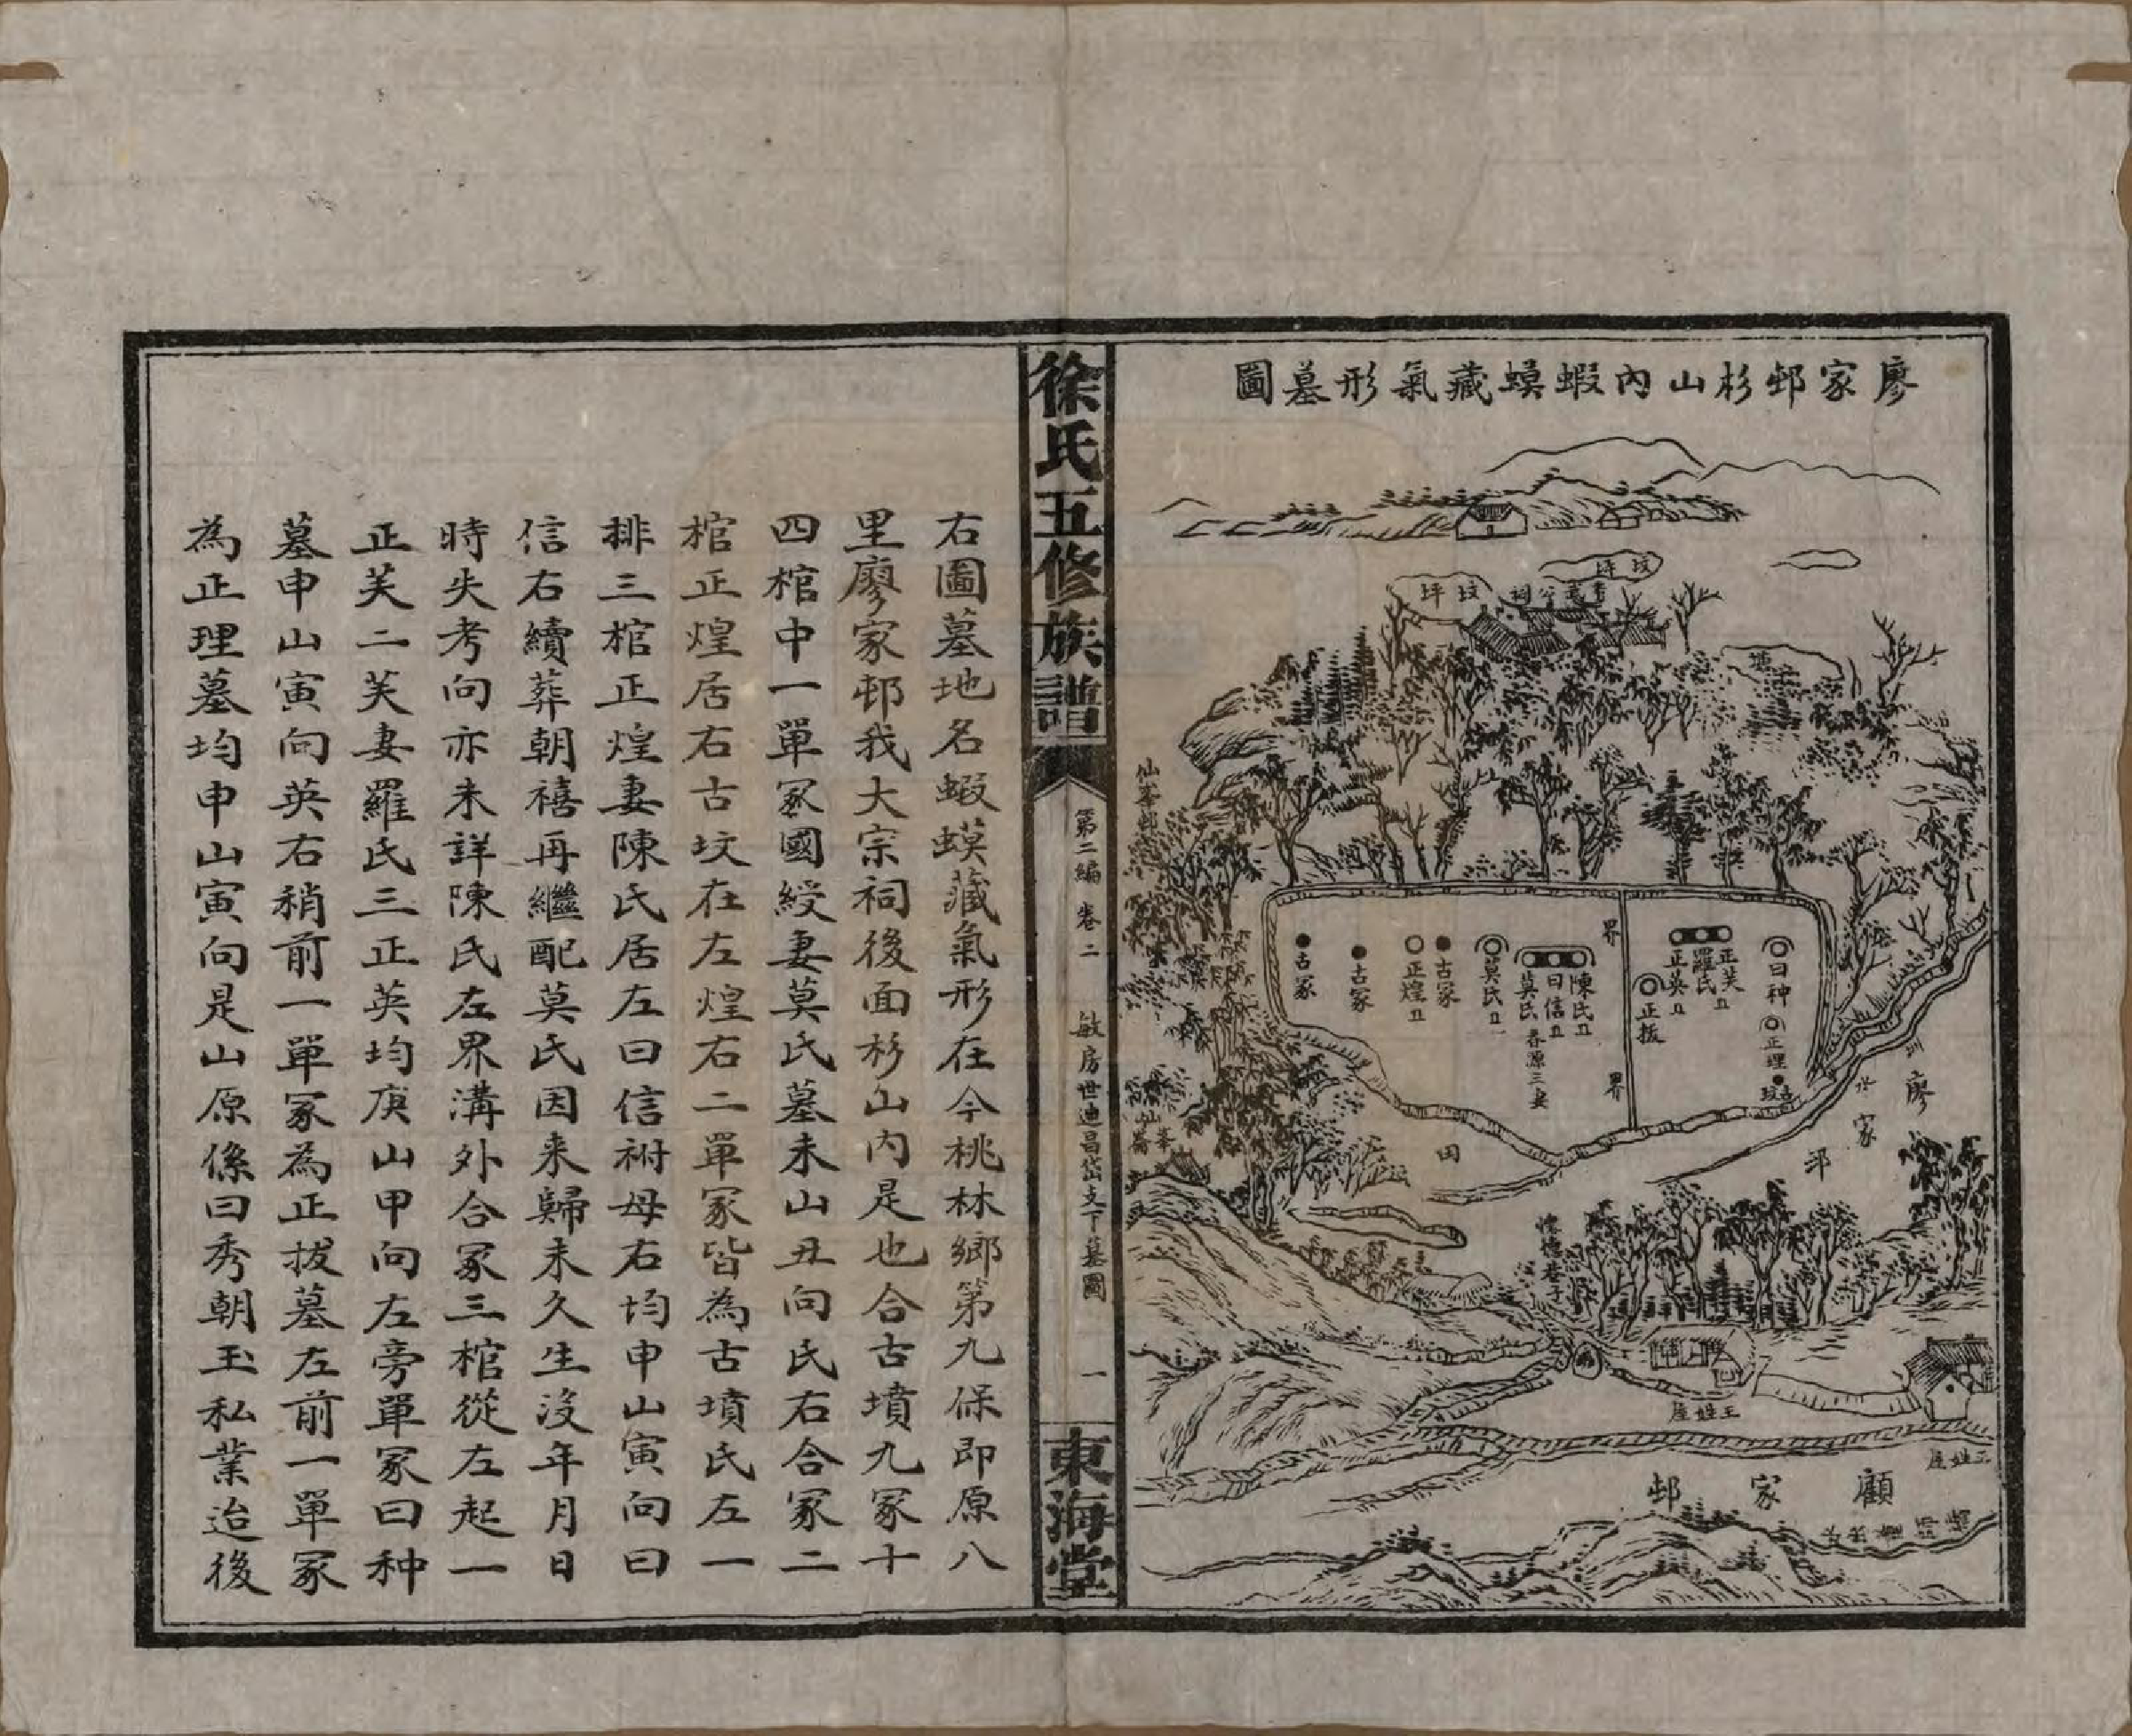 廖家邨杉山內蝦蟆藏氣形墓圖
坟坪
坟坪
塘
仙峯邨
界
界
曰种
正理
古坟
正芙
羅氏
正英
正拔
陳氏
曰信
莫氏
春源三妻
莫氏
古冢
正煌
古冢
古冢
田
水圳
廖家邨
仙峯
王姓屋
王姓屋
顧家邨
徐氏五修族譜
第二編 卷二
敏房世迪昌岱支下墓圖
一
東海堂
右圖墓地名蝦蟆藏氣形在今桃林鄉第九保即原八
里廖家邨我大宗祠後面杉山內是也合古墳九冢十
四棺中一單冢國綬妻莫氏墓未山丑向氏右合冢二
棺正煌居右古坟在左煌右二單冢皆為古墳氏左一
排三棺正煌妻陳氏居左曰信祔母右均申山寅向曰
信右續葬朝禧再繼配莫氏因来歸未久生沒年月日
時失考向亦未詳陳氏左界溝外合冢三棺從左起一
正芙二芙妻羅氏三正英均庚山甲向左旁單冢曰种
墓申山寅向英右稍前一單冢為正拔墓左前一單冢
為正理墓均申山寅向是山原係曰秀朝玉私業迨後